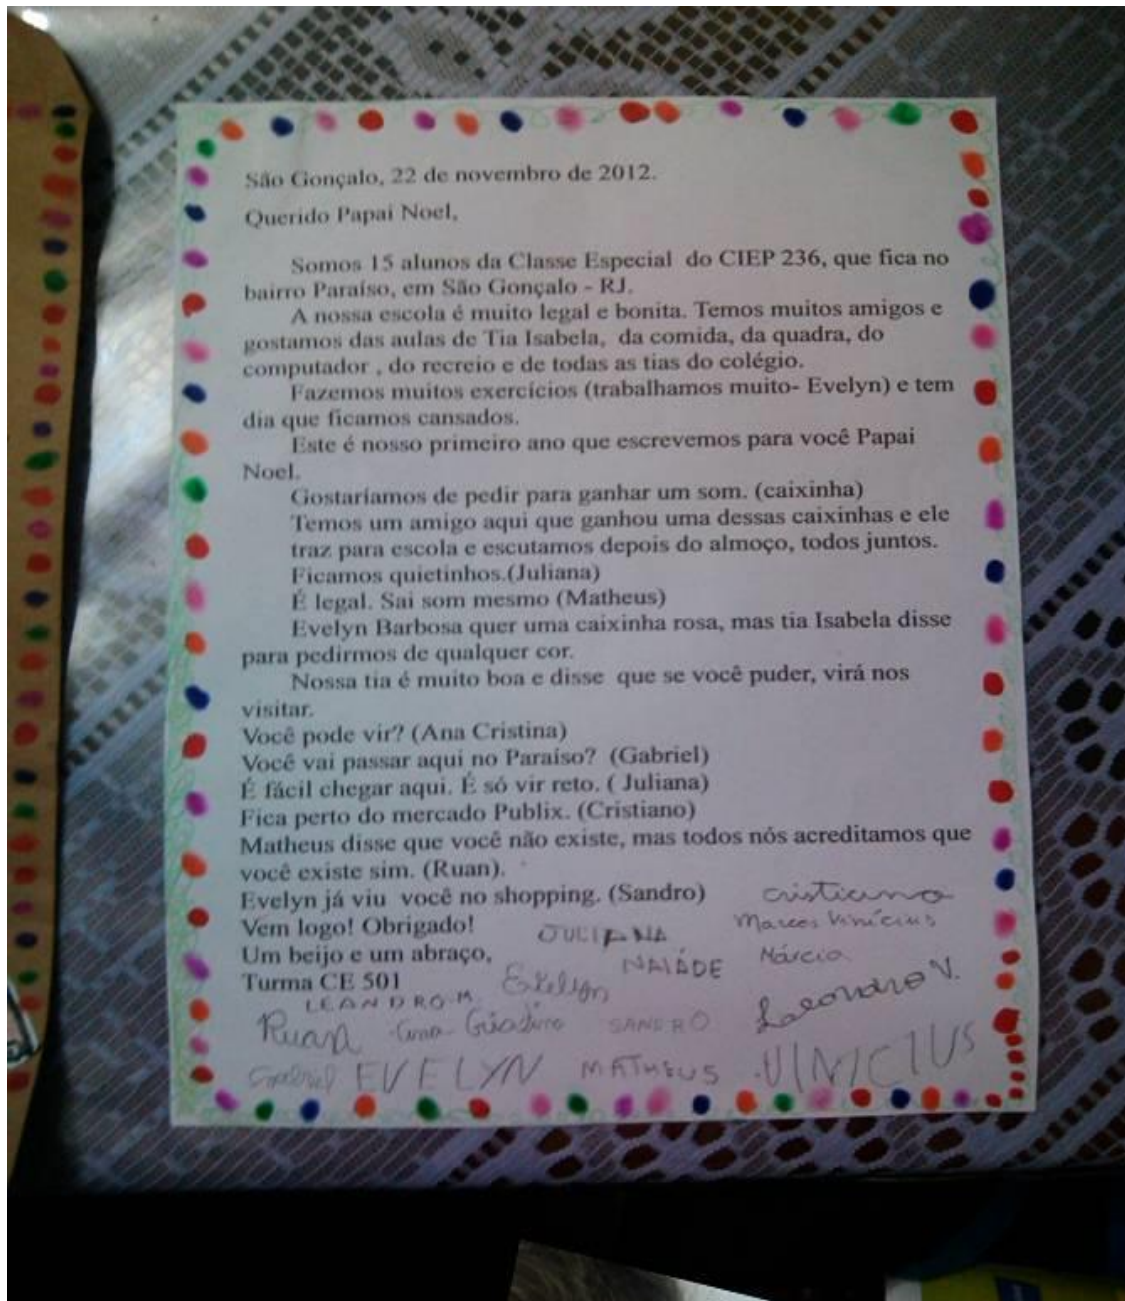 São Gonçalo, 22 de novembro de 2012.
Querido Papai Noel,
Somos 15 alunos da Classe Especial do CIEP 236, que fica no
bairro Paraíso, em São Gonçalo - RJ.
A nossa escola é muito legal e bonita. Temos muitos amigos e
gostamos das aulas de Tia Isabela, da comida, da quadra, do
computador , do recreio e de todas as tias do colégio.
Fazemos muitos exercícios (trabalhamos muito- Evelyn) e tem
dia que ficamos cansados.
Este é nosso primeiro ano que escrevemos para você Papai
Noel.
Gostaríamos de pedir para ganhar um som. (caixinha)
Temos um amigo aqui que ganhou uma dessas caixinhas e ele
traz para escola e escutamos depois do almoço, todos juntos.
Ficamos quietinhos.(Juliana)
É legal. Sai som mesmo (Matheus)
Evelyn Barbosa quer uma caixinha rosa, mas tia Isabela disse
para pedirmos de qualquer cor.
Nossa tia é muito boa e disse que se você puder, virá nos
visitar.
Você pode vir? (Ana Cristina)
Você vai passar aqui no Paraíso? (Gabriel)
É fácil chegar aqui. É só vir reto. ( Juliana)
Fica perto do mercado Publix. (Cristiano)
Matheus disse que você não existe, mas todos nós acreditamos que
você existe sim. (Ruan).
Evelyn já viu você no shopping. (Sandro)
Cristiano
Vem logo! Obrigado!
JULIANA
Marcos Vinícius
Um beijo e um abraço,
NAIÁDE
Márcia
Turma CE 501
LEANDRO M.
Leandro V.
Ruan
SANDRO
Gabriel
EVELYN
MATHEUS
VINICIUS